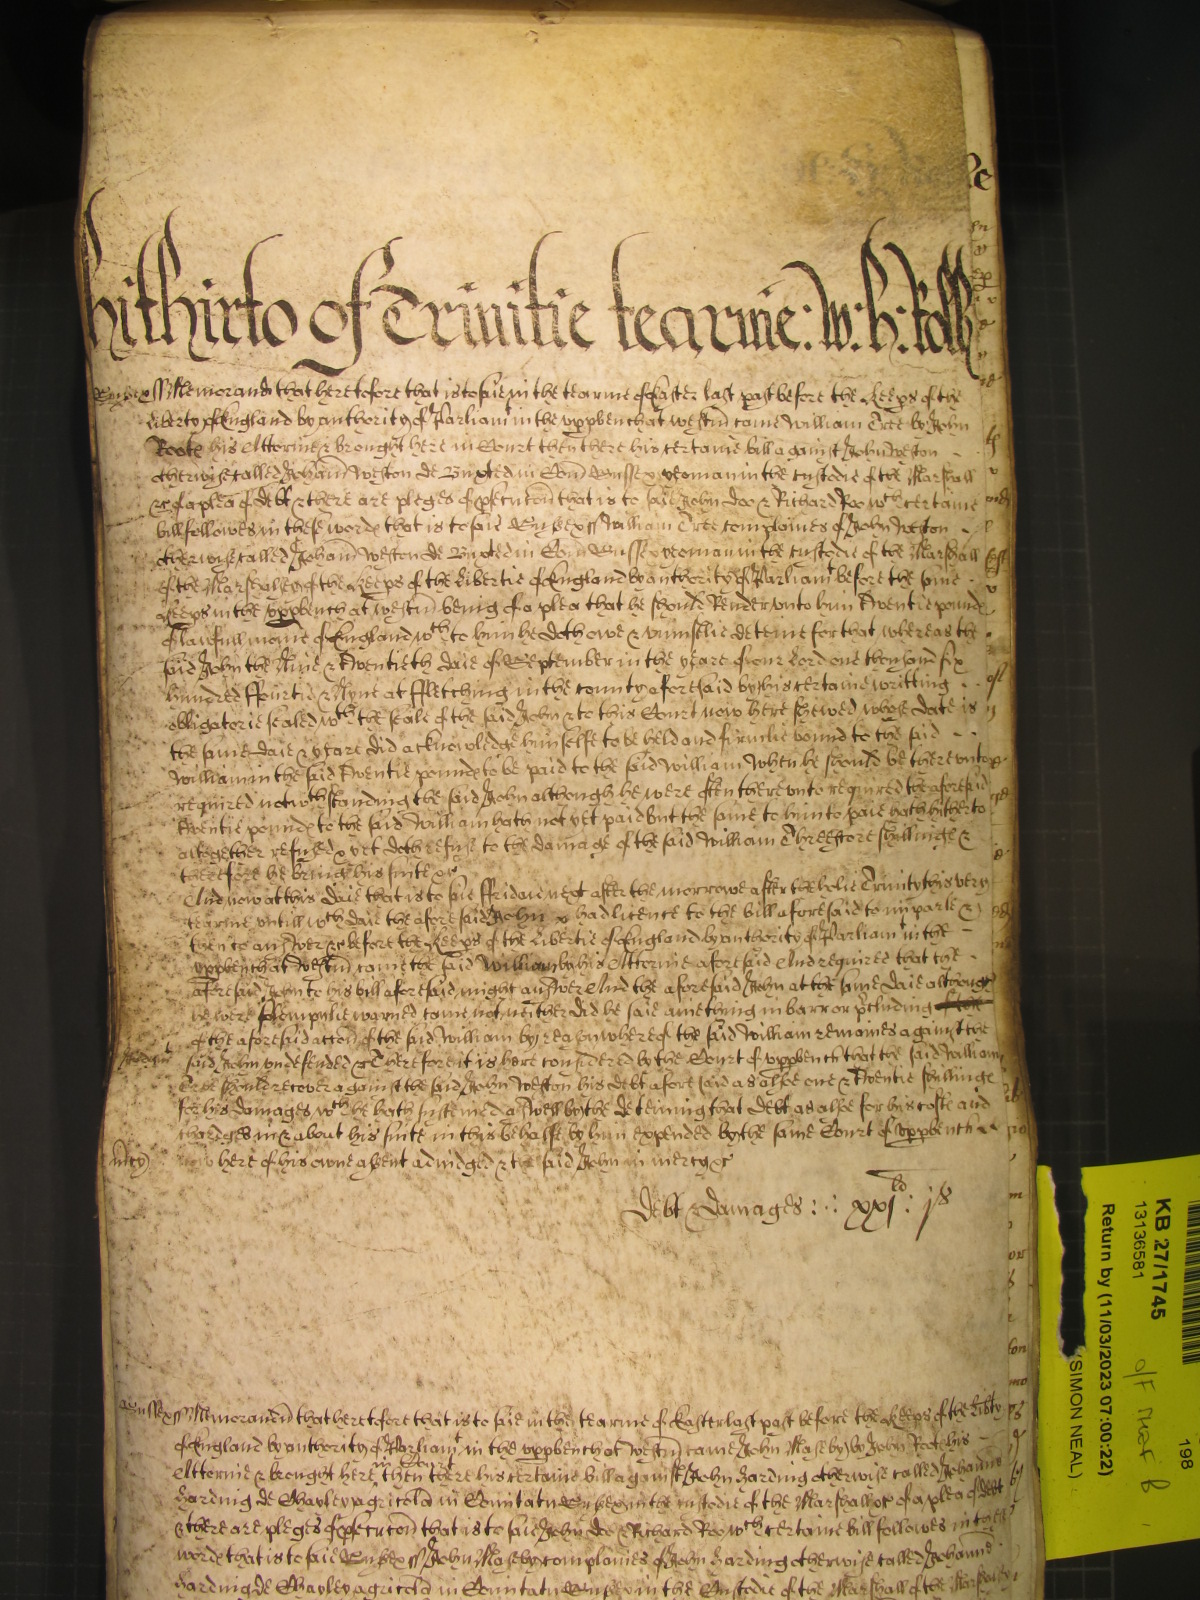 hithirto of Trinitie tearme: W: h: Roll
Sussex ss Memorand that heretofore that is to saie in the tearme of Easter last past before the Keeps of the
liberty of England by authority of Parliamt in the uppbench at Westm came William Cree by John
Roote his Attornie & brought here in Court then there his certaine bill against John Weston
otherwise called Johan Weston de Buxted in Com Sussex yeoman in the custodie of the Marshall
&c of a plea of debt & there are pleges of psecucon that is to saie John Doo & Richard Roo wch certaine
bill followes in these words that is to saie Sussex ss William Cree complaines of John Weston
otherwise called Johan Weston de Buxted in Com Sussex yeoman in the custodie of the Marshall
of the Marshalsey of the Keeps of the Libertie of England by authority of Parliamt before the same
Keeps in the uppbench at Westm being of a plea that he should Render unto him Twentie pounds
of lawfull monie of England wch to him he doth owe & uniustlie deteine for that whereas the
said John the Nine & Twentieth daie of September in the yeare of our Lord one thousand six
hundred ffourtie & Nyne at ffletching in the county aforesaid by his certaine writting
obligatorie sealed wth the seale of the said John & to this Court now here shewed whose date is
the same daie & yeare did acknowledge himselfe to be held and firmlie bound to the said
William in the said Twentie pounds to be paid to the said William when he should be thereunto
required notwthstanding the said John although he were often thereunto required the aforesaid
Twentie pounds to the said William hath not yet paid but the same to him to paie hath hitherto
altogether refused & yet doth refuse to the damage of the said William Threescore shillings &
therefore he brings his suite &c
And now at this daie that is to saie ffridaie next after the morrowe after the holie Trinity this very
tearme untill wch daie the aforesaid John had licence to the bill aforesaid to imparle &
then to answer &c before the Keeps of the Libertie of England by authority of Parliamt in the
uppbench at Westm came the said William by his Attornie aforesaid And required that the
aforesaid John to his bill aforesaid might answer And the aforesaid John at the same daie although
he were solempnlie warned came not neither did he saie anie thing in barr or pcluding
of the aforesaid accon of the said William by reason whereof the said William remaines against the
said John undefended &c Therefore it is here considered by the Court of uppbench that the said William
Cree should recover against the said John Weston his debt aforesaid as alsoe one & Twentie shillings
for his damages wch he hath susteined aswell by the deteining that debt as alsoe for his costs and
charges in & about his suite in this behalfe by him expended by the same Court of uppbench
now here of his owne assent adiudged & the said John in mercy &c
mcy
Debt & damages : : xxj li : js
Sussex ss Memorand that heretofore that is to saie in the tearme of Easter last past before the Keeps of the Libty
of England by authority of Parliamt in the uppbench at Westm came John Maseby by John Roote his
Attornie & brought here in Court then there his certaine bill against John Harding otherwise called Johanne
Harding de Chayley agricola in Comitatu Sussex in the custodie of the Marshall &c of a plea of debt
& there are pleges of psecucon that is to saie John Doo & Richard Roo wch certaine bill followes in these
words that is to saie Sussex ss John Maseby complaines of John Harding otherwise called Johanne
Harding de Chayley agricola in Comitatu Sussex in the Custodie of the Marshall of the Marshalsey
KB 27/1745
13136581
Return by (11/03/2023 07:00:22)
(SIMON NEAL)
198